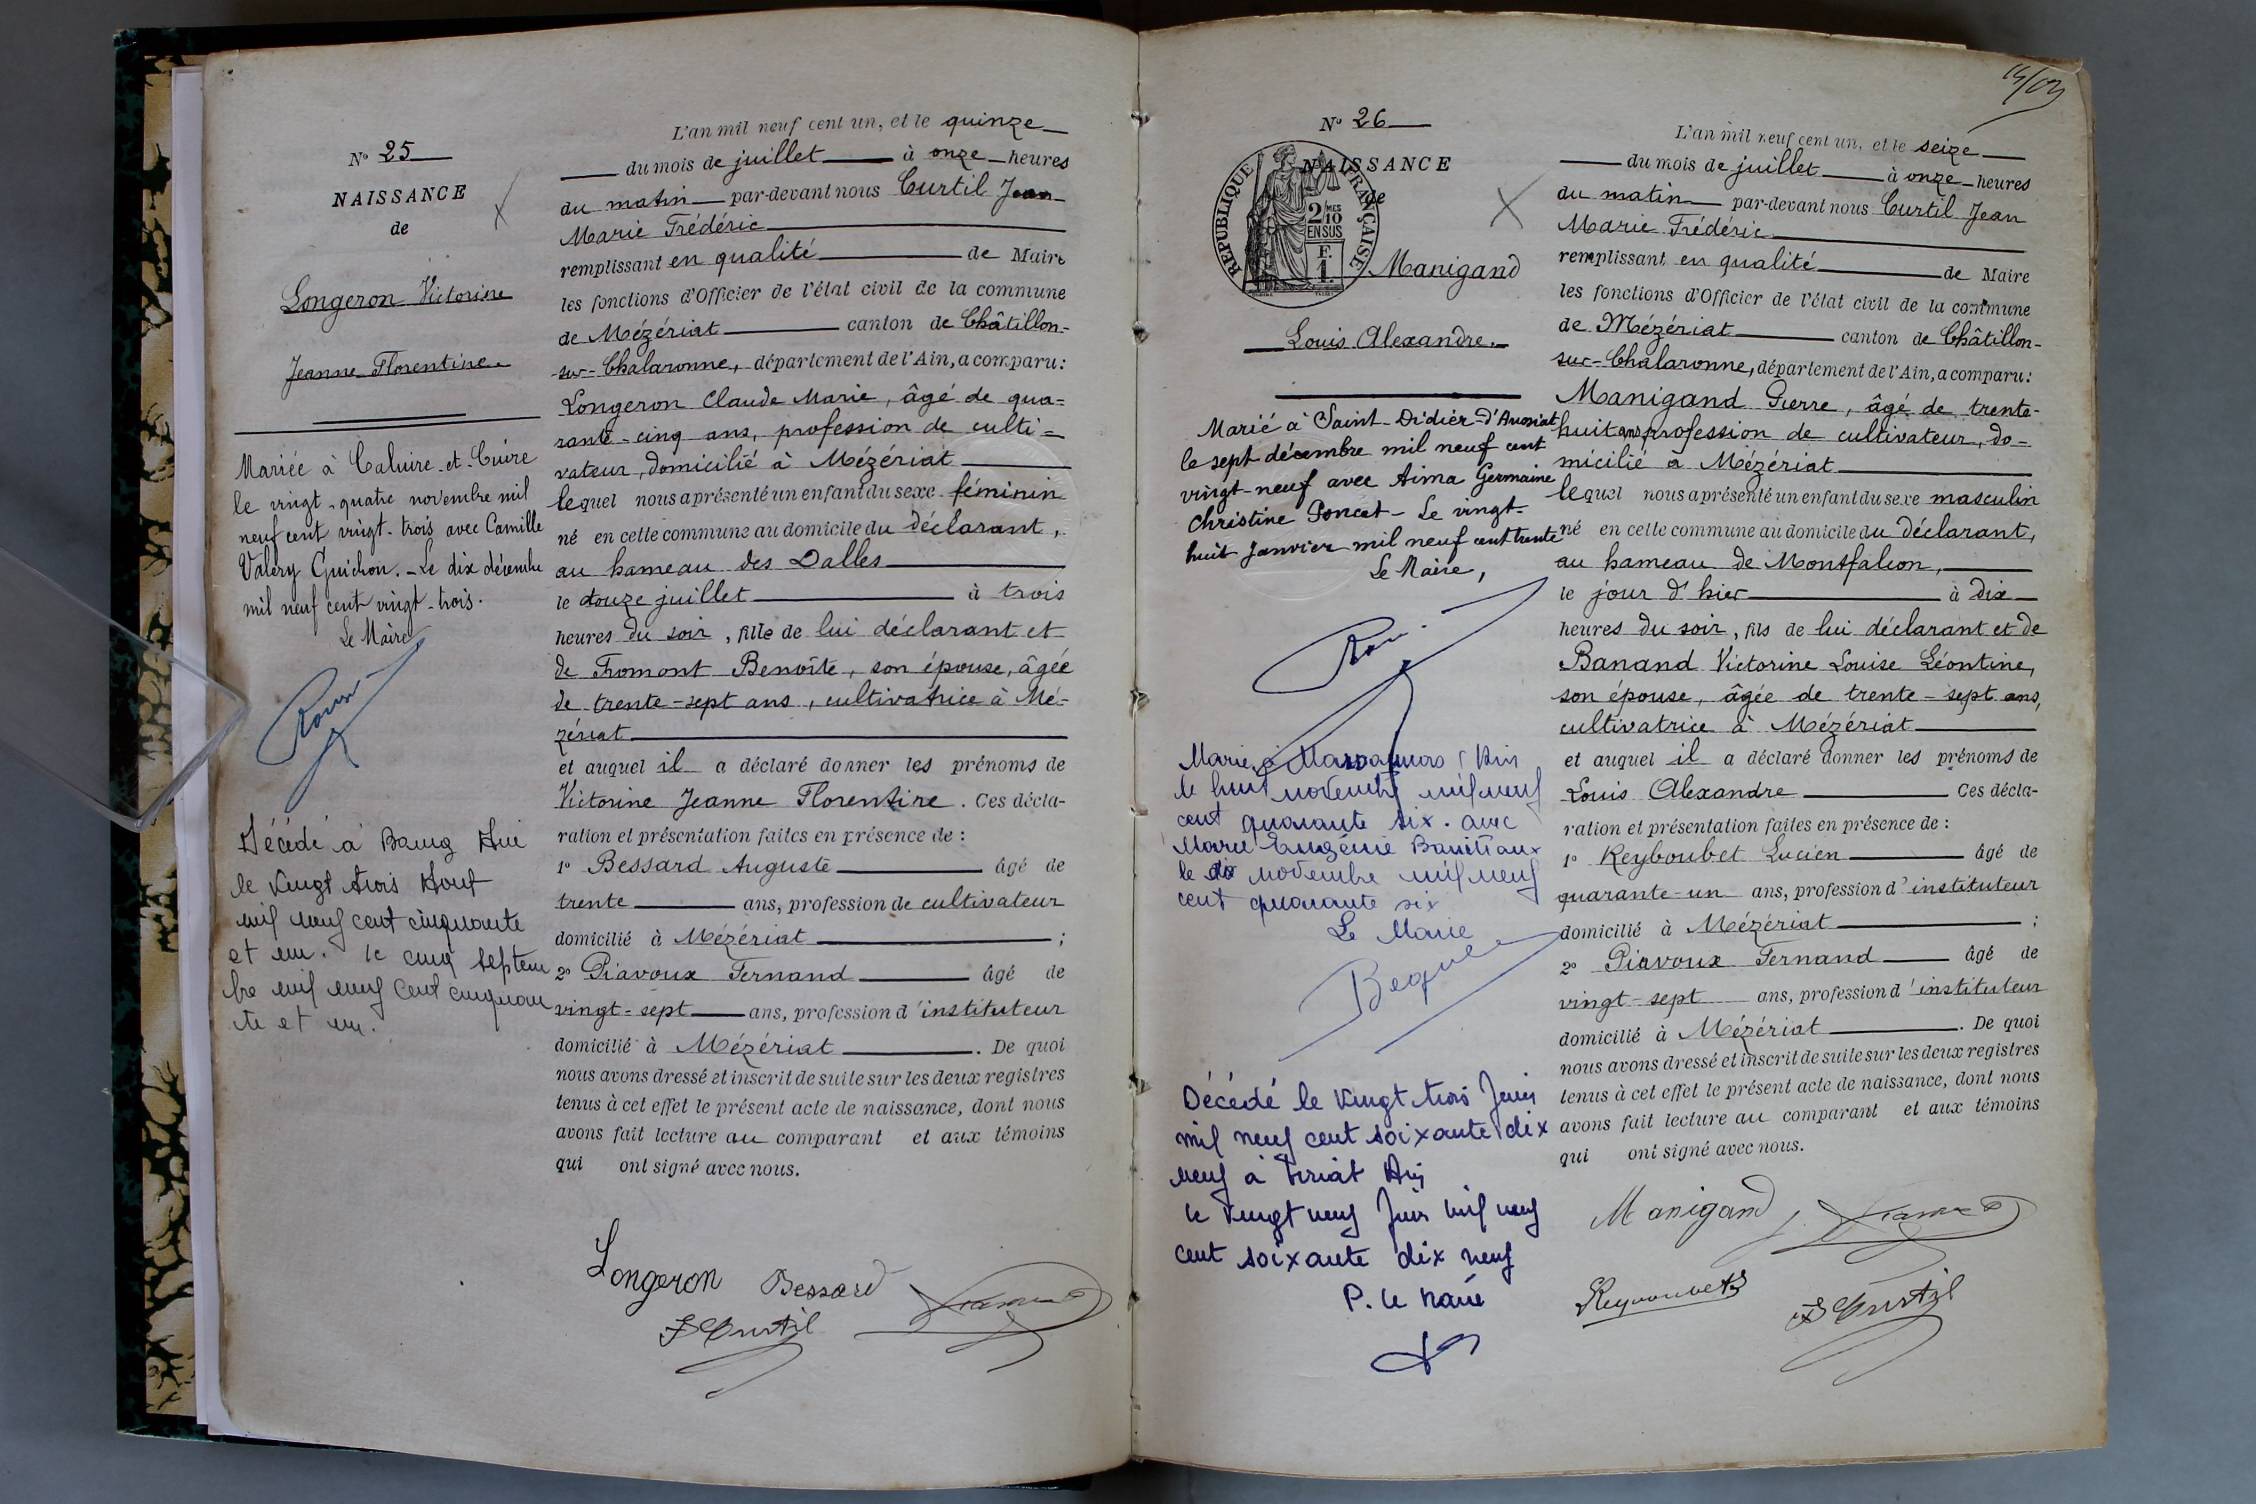 N° 25
NAISSANCE
de
Longeron Victorine
Jeanne Florentine.
Mariée à Caluire-et-Cuire
le vingt-quatre novembre mil
neuf cent vingt-trois avec Camille
Valéry Guichon. - Le dix décembre
mil neuf cent vingt-trois.
Le Maire
Décédé à Bourg Ain
le vingt trois Aout
mil neuf cent cinquante
et un. le cinq Septem
bre mil neuf cent cinquan
te et un.
L'an mil neuf cent un, et le quinze
du mois de juillet à onze heures
du matin par-devant nous Curtil Jean
Marie Frédéric
remplissant en qualité de Maire
les fonctions d'Officier de l'état civil de la commune
de Mézériat canton de Châtillon-
-sur-Chalaronne, département de l'Ain, a comparu:
Longeron Claude Marie, âgé de qua=
rante-cinq ans, profession de culti=
vateur, domicilié à Mézériat
lequel nous a présenté un enfant du sexe féminin
né en cette commune au domicile du déclarant,
au hameau des Dalles
le douze juillet à trois
heures du soir, fille de lui déclarant et
de Fromont Benoîte, son épouse, âgée
de trente-sept ans, cultivatrice à Mé-
zériat
et auquel il a déclaré donner les prénoms de
Victorine Jeanne Florentine. Ces décla-
ration et présentation faites en présence de :
1° Bessard Auguste âgé de
trente ans, profession de cultivateur
domicilié à Mézériat ;
2° Piavoux Fernand âgé de
vingt-sept ans, profession d'instituteur
domicilié à Mézériat. De quoi
nous avons dressé et inscrit de suite sur les deux registres
tenus à cet effet le présent acte de naissance, dont nous
avons fait lecture au comparant et aux témoins
qui ont signé avec nous.
Longeron Bessard
F Curtil
14/03
N° 26
NAISSANCE
de
REPUBLIQUE FRANÇAISE
2/10 MES
EN SUS
E
1
Manigand
Louis Alexandre.
Marié à Saint-Didier-d'Aussiat
le sept décembre mil neuf cent
vingt-neuf avec Aima Germaine
Christine Poncet - Le vingt-
huit Janvier mil neuf cent trente
Le Maire,
Marié à Ain
le huit novembre mil neuf
cent quarante six. avec
Marie Eugénie
le dix novembre mil neuf
cent quarante six
Le Maire
Décédé le vingt trois Juin
mil neuf cent soixante dix
neuf à Viriat Ain
le vingt neuf Juin mil neuf
cent soixante dix neuf
P. le Maire
L'an mil neuf cent un, et le seize
du mois de juillet à onze heures
du matin par-devant nous Curtil Jean
Marie Frédéric
remplissant en qualité de Maire
les fonctions d'Officier de l'état civil de la commune
de Mézériat canton de Châtillon-
sur-Chalaronne, département de l'Ain, a comparu:
Manigand Pierre, âgé de trente-
huit ans, profession de cultivateur, do-
micilié à Mézériat
lequel nous a présenté un enfant du sexe masculin
né en cette commune au domicile du déclarant,
au hameau de Montfalcon,
le jour d'hier à dix
heures du soir, fils de lui déclarant et de
Banand Victorine Louise Léontine,
son épouse, âgée de trente-sept ans,
cultivatrice à Mézériat
et auquel il a déclaré donner les prénoms de
Louis Alexandre Ces décla-
ration et présentation faites en présence de :
1° Reyboubet Lucien âgé de
quarante-un ans, profession d'instituteur
domicilié à Mézériat ;
2° Piavoux Fernand âgé de
vingt-sept ans, profession d'instituteur
domicilié à Mézériat. De quoi
nous avons dressé et inscrit de suite sur les deux registres
tenus à cet effet le présent acte de naissance, dont nous
avons fait lecture au comparant et aux témoins
qui ont signé avec nous.
Manigand
F Curtil